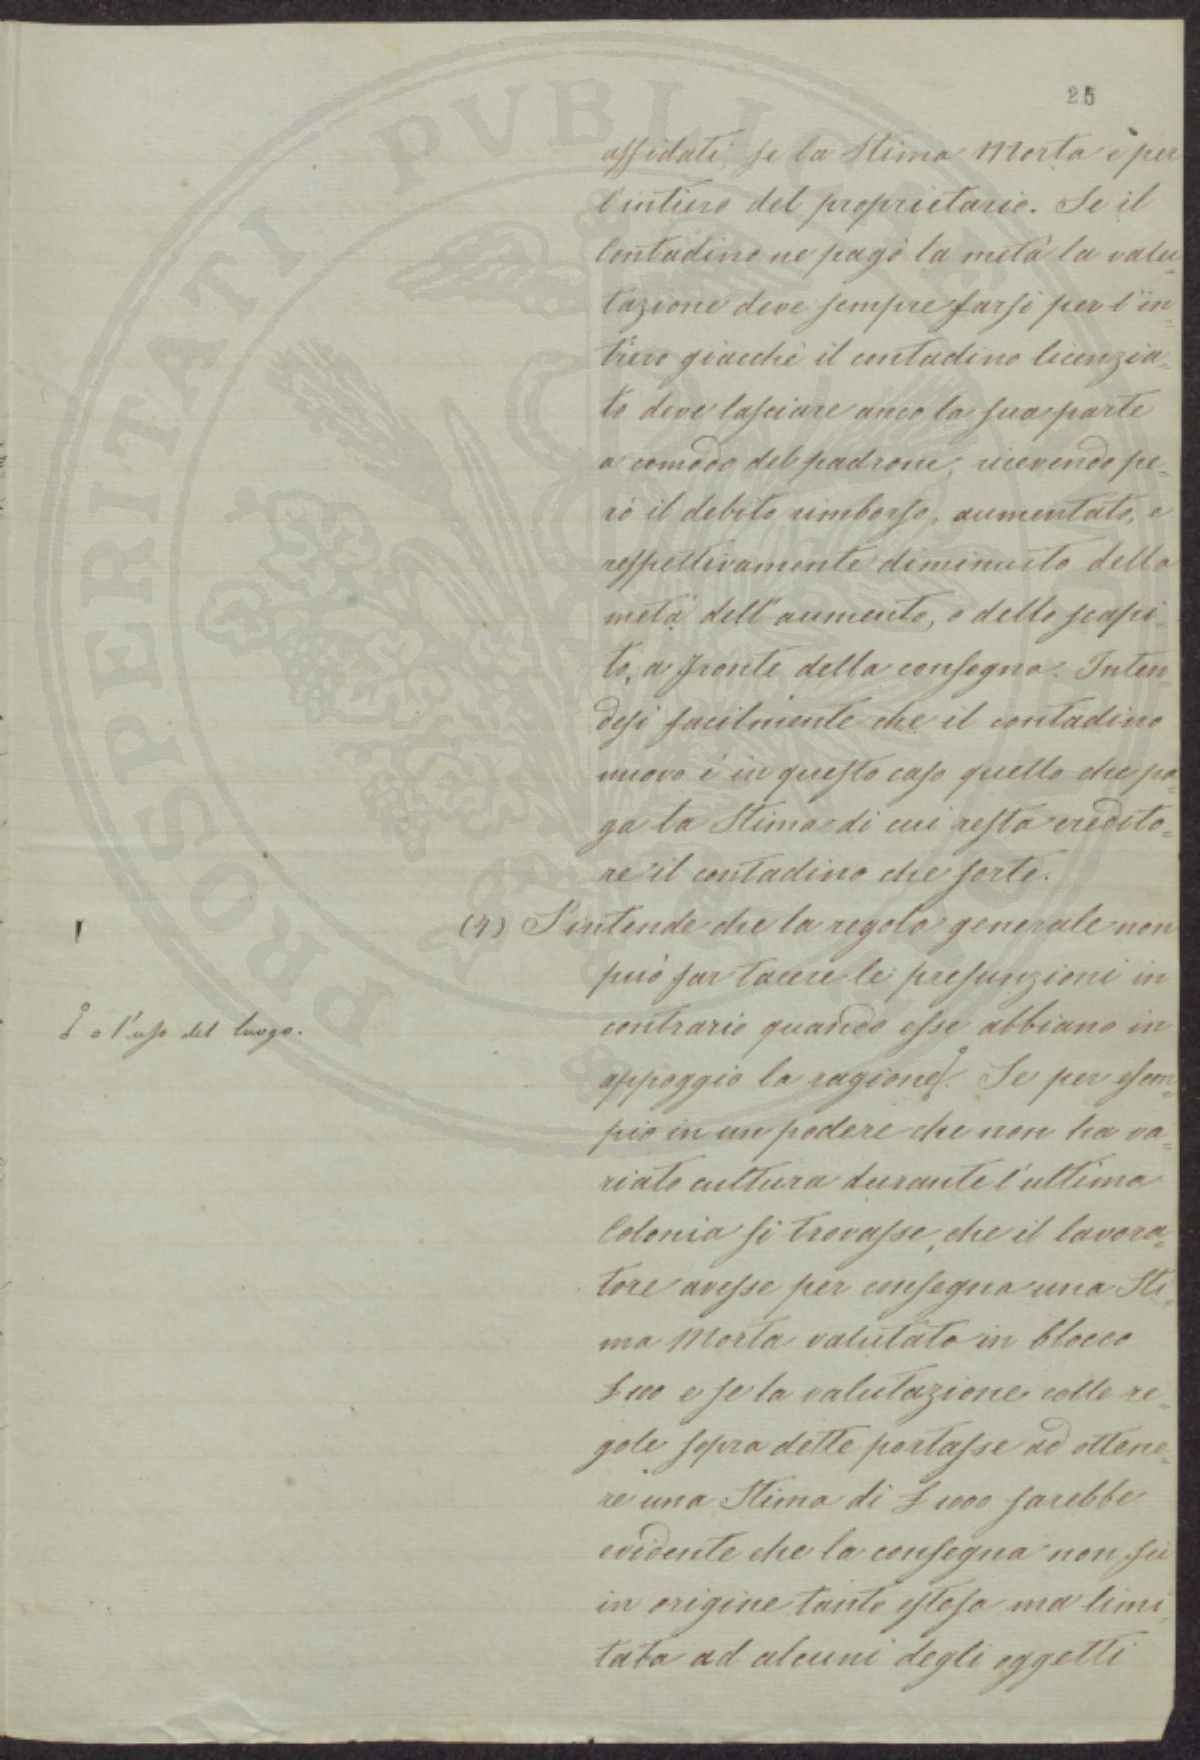 25
affidati, se la Stima Morta è per
l'intiero del proprietario. Se il
Contadino ne pagò la metà la valu=
tazione deve sempre farsi per l'in=
tiero giacchè il contadino licenzia=
to deve lasciare anco la sua parte
a comodo del padrone, ricevendo pe=
rò il debito rimborso, aumentato, e
respettivamente diminuito della
metà dell'aumento, o dello scapi=
to, a fronte della consegna. Inten=
desi facilmente che il contadino
nuovo è in questo caso quello che pa=
ga la Stima di cui resta credito=
re il contadino che sorte.
(4) S'intende che la regola generale non
può far tacere le presunzioni in
contrario quando esse abbiano in
appoggio la ragione. Se per esem=
pio in un podere che non ha va=
riato cultura durante l'ultima
Colonia si trovasse, che il lavora=
tore avesse per consegna una Sti=
ma Morta valutata in blocco
£ 100 e se la valutazione colle re=
gole sopra dette portasse ad ottene=
re una Stima di £ 1000 sarebbe
evidente che la consegna non fu
in origine tanto estesa ma limi=
tata ad alcuni degli oggetti
o l'uso del luogo.
PROSPERITATI PUBLICAE